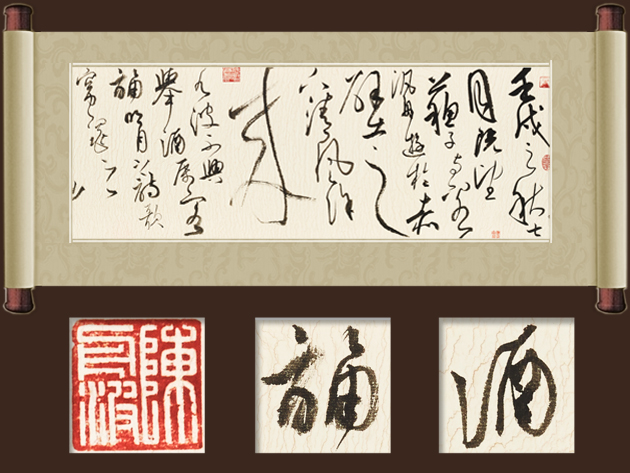 壬戌之秋七
月既望
蘇子與客
泛舟遊於赤
壁之
下清風徐
來
水波不興
舉酒屬客
誦明月之詩歌
窈窕之
陳
誦
酒